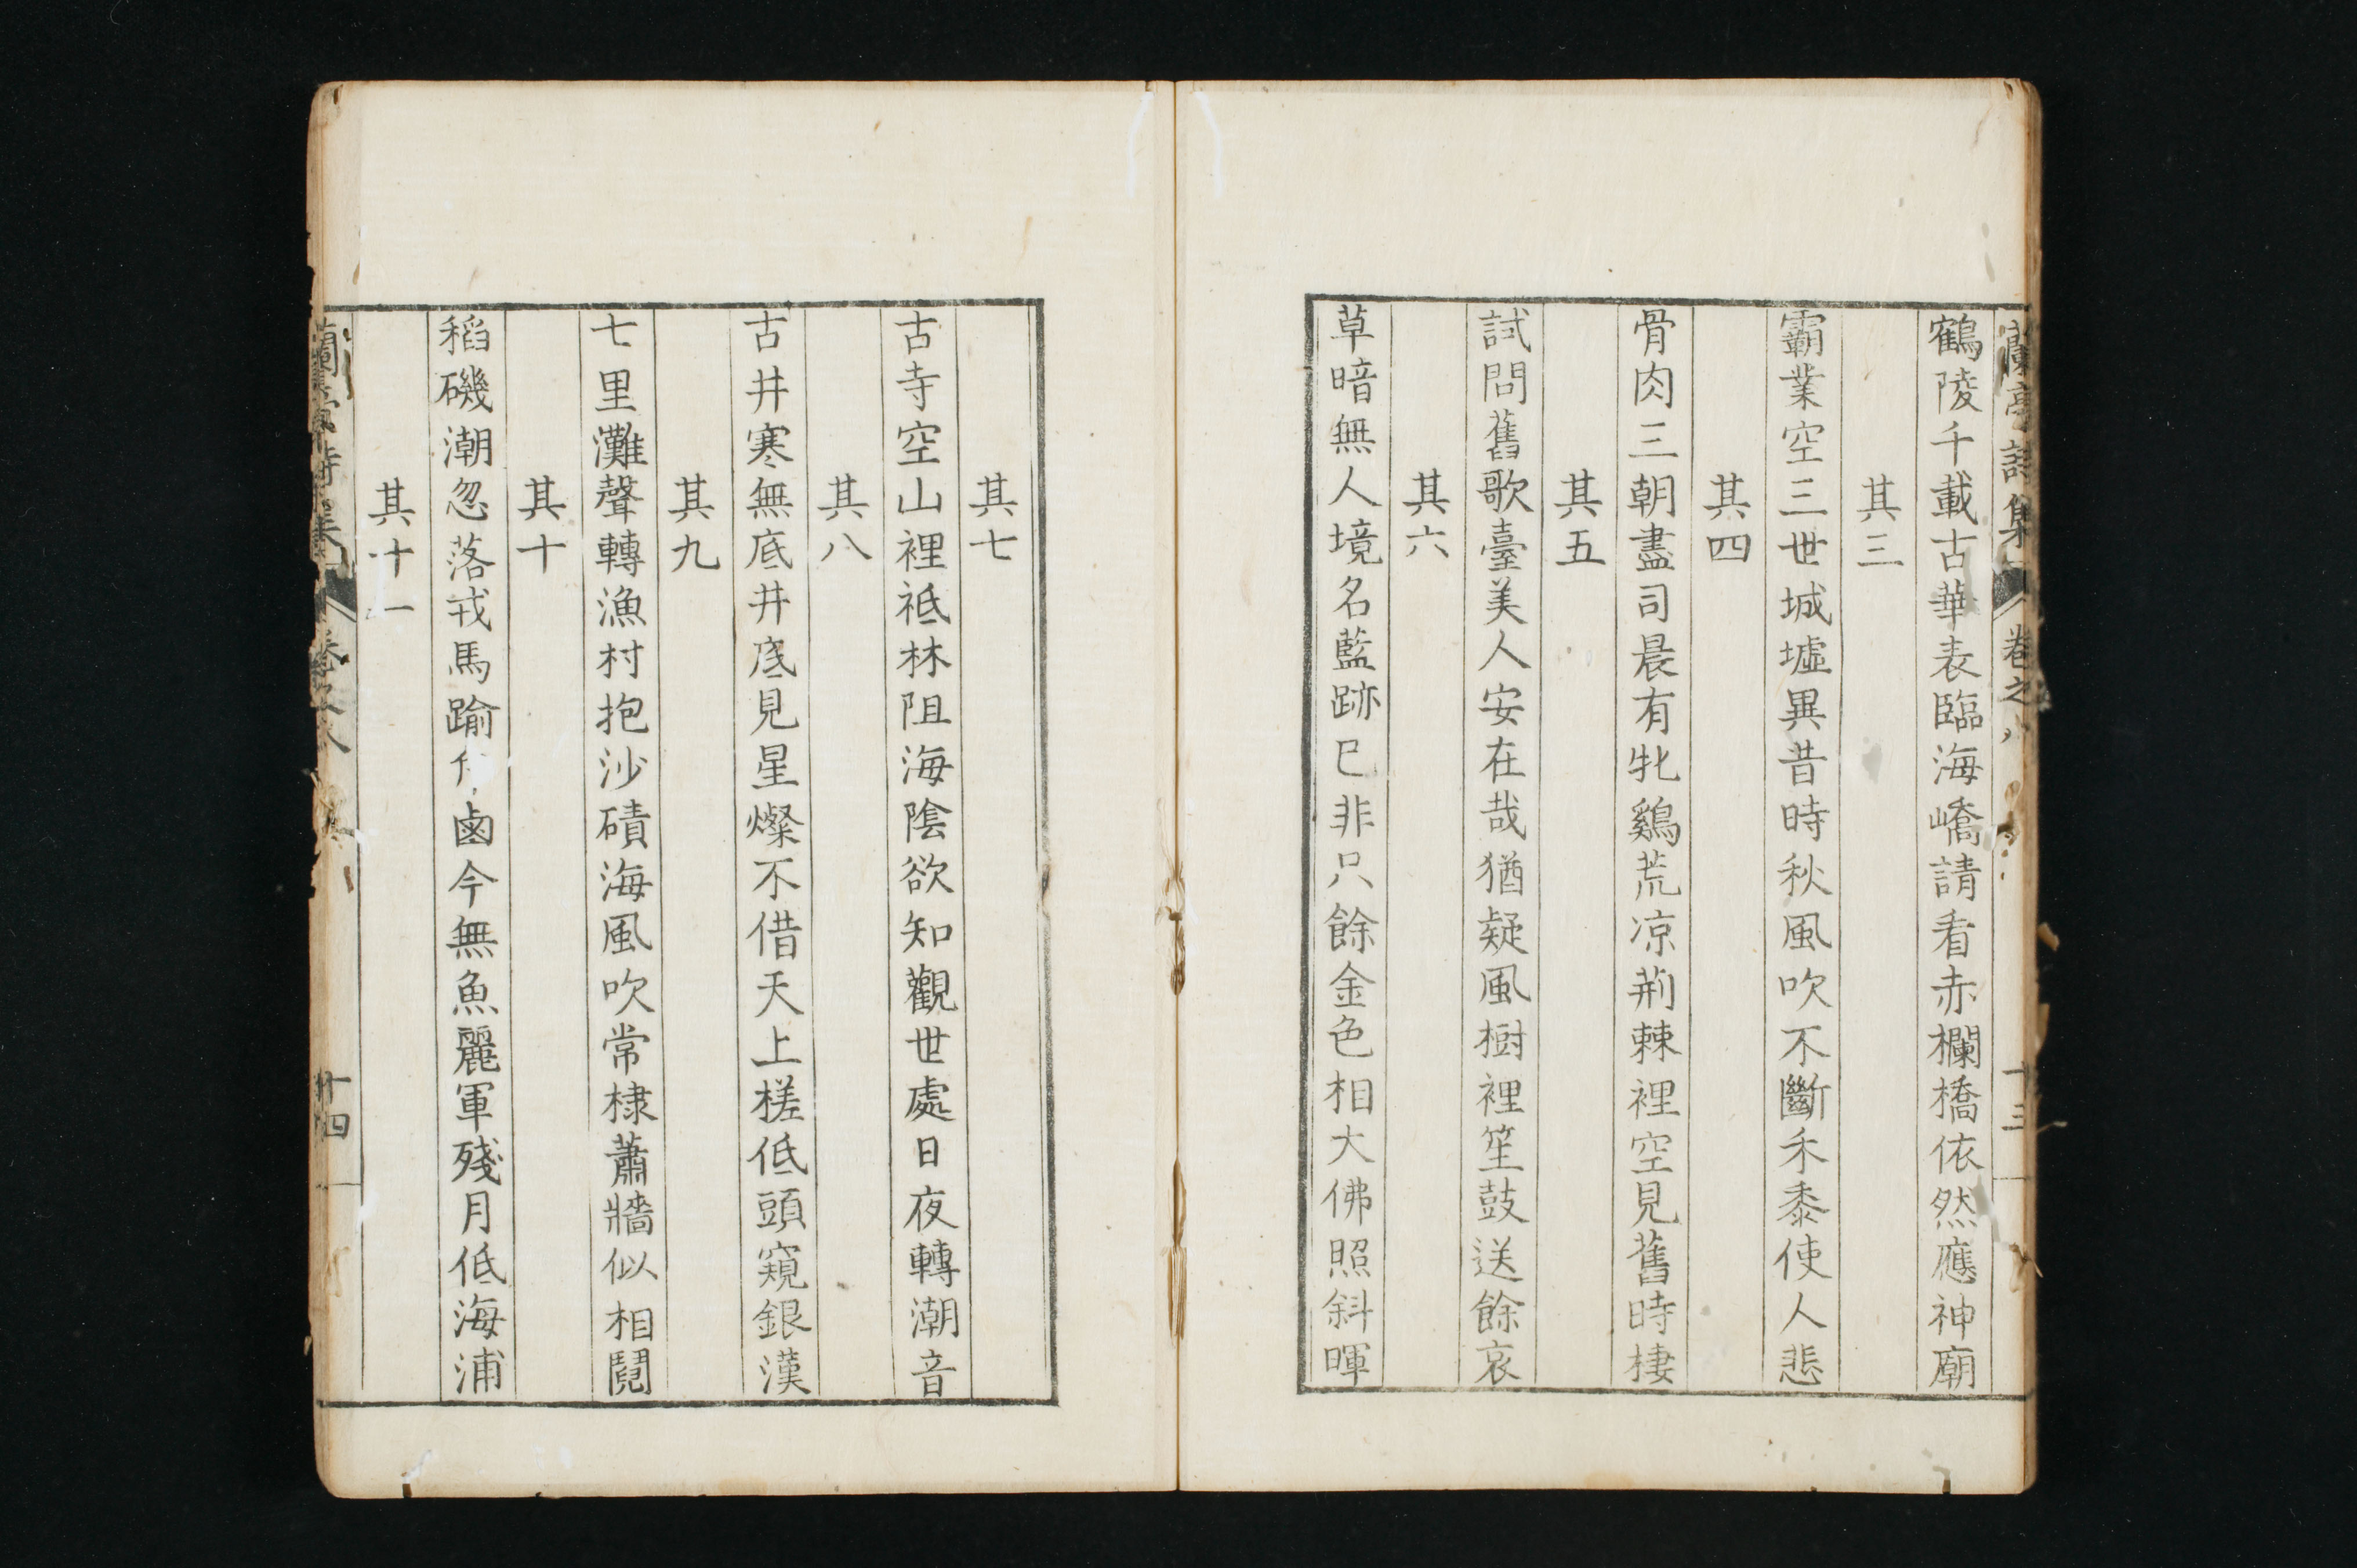 蘭亭詩集 卷之八 十三
鶴陵千載古華表臨海嶠請看赤欄橋依然應神廟
其三
霸業空三世城墟異昔時秋風吹不斷禾黍使人悲
其四
骨肉三朝盡司晨有牝鷄荒凉荊棘裡空見舊時棲
其五
試問舊歌臺美人安在哉猶疑風樹裡笙鼓送餘哀
其六
草暗無人境名藍跡已非只餘金色相大佛照斜暉
其七
古寺空山裡祗林阻海陰欲知觀世處日夜轉潮音
其八
古井寒無底井底見星燦不借天上槎低頭窺銀漢
其九
七里灘聲轉漁村抱沙磧海風吹常棣蕭牆似相鬩
其十
稻磯潮忽落戎馬踰 鹵今無魚麗軍殘月低海浦
其十一
蘭亭詩集 卷之八 十四